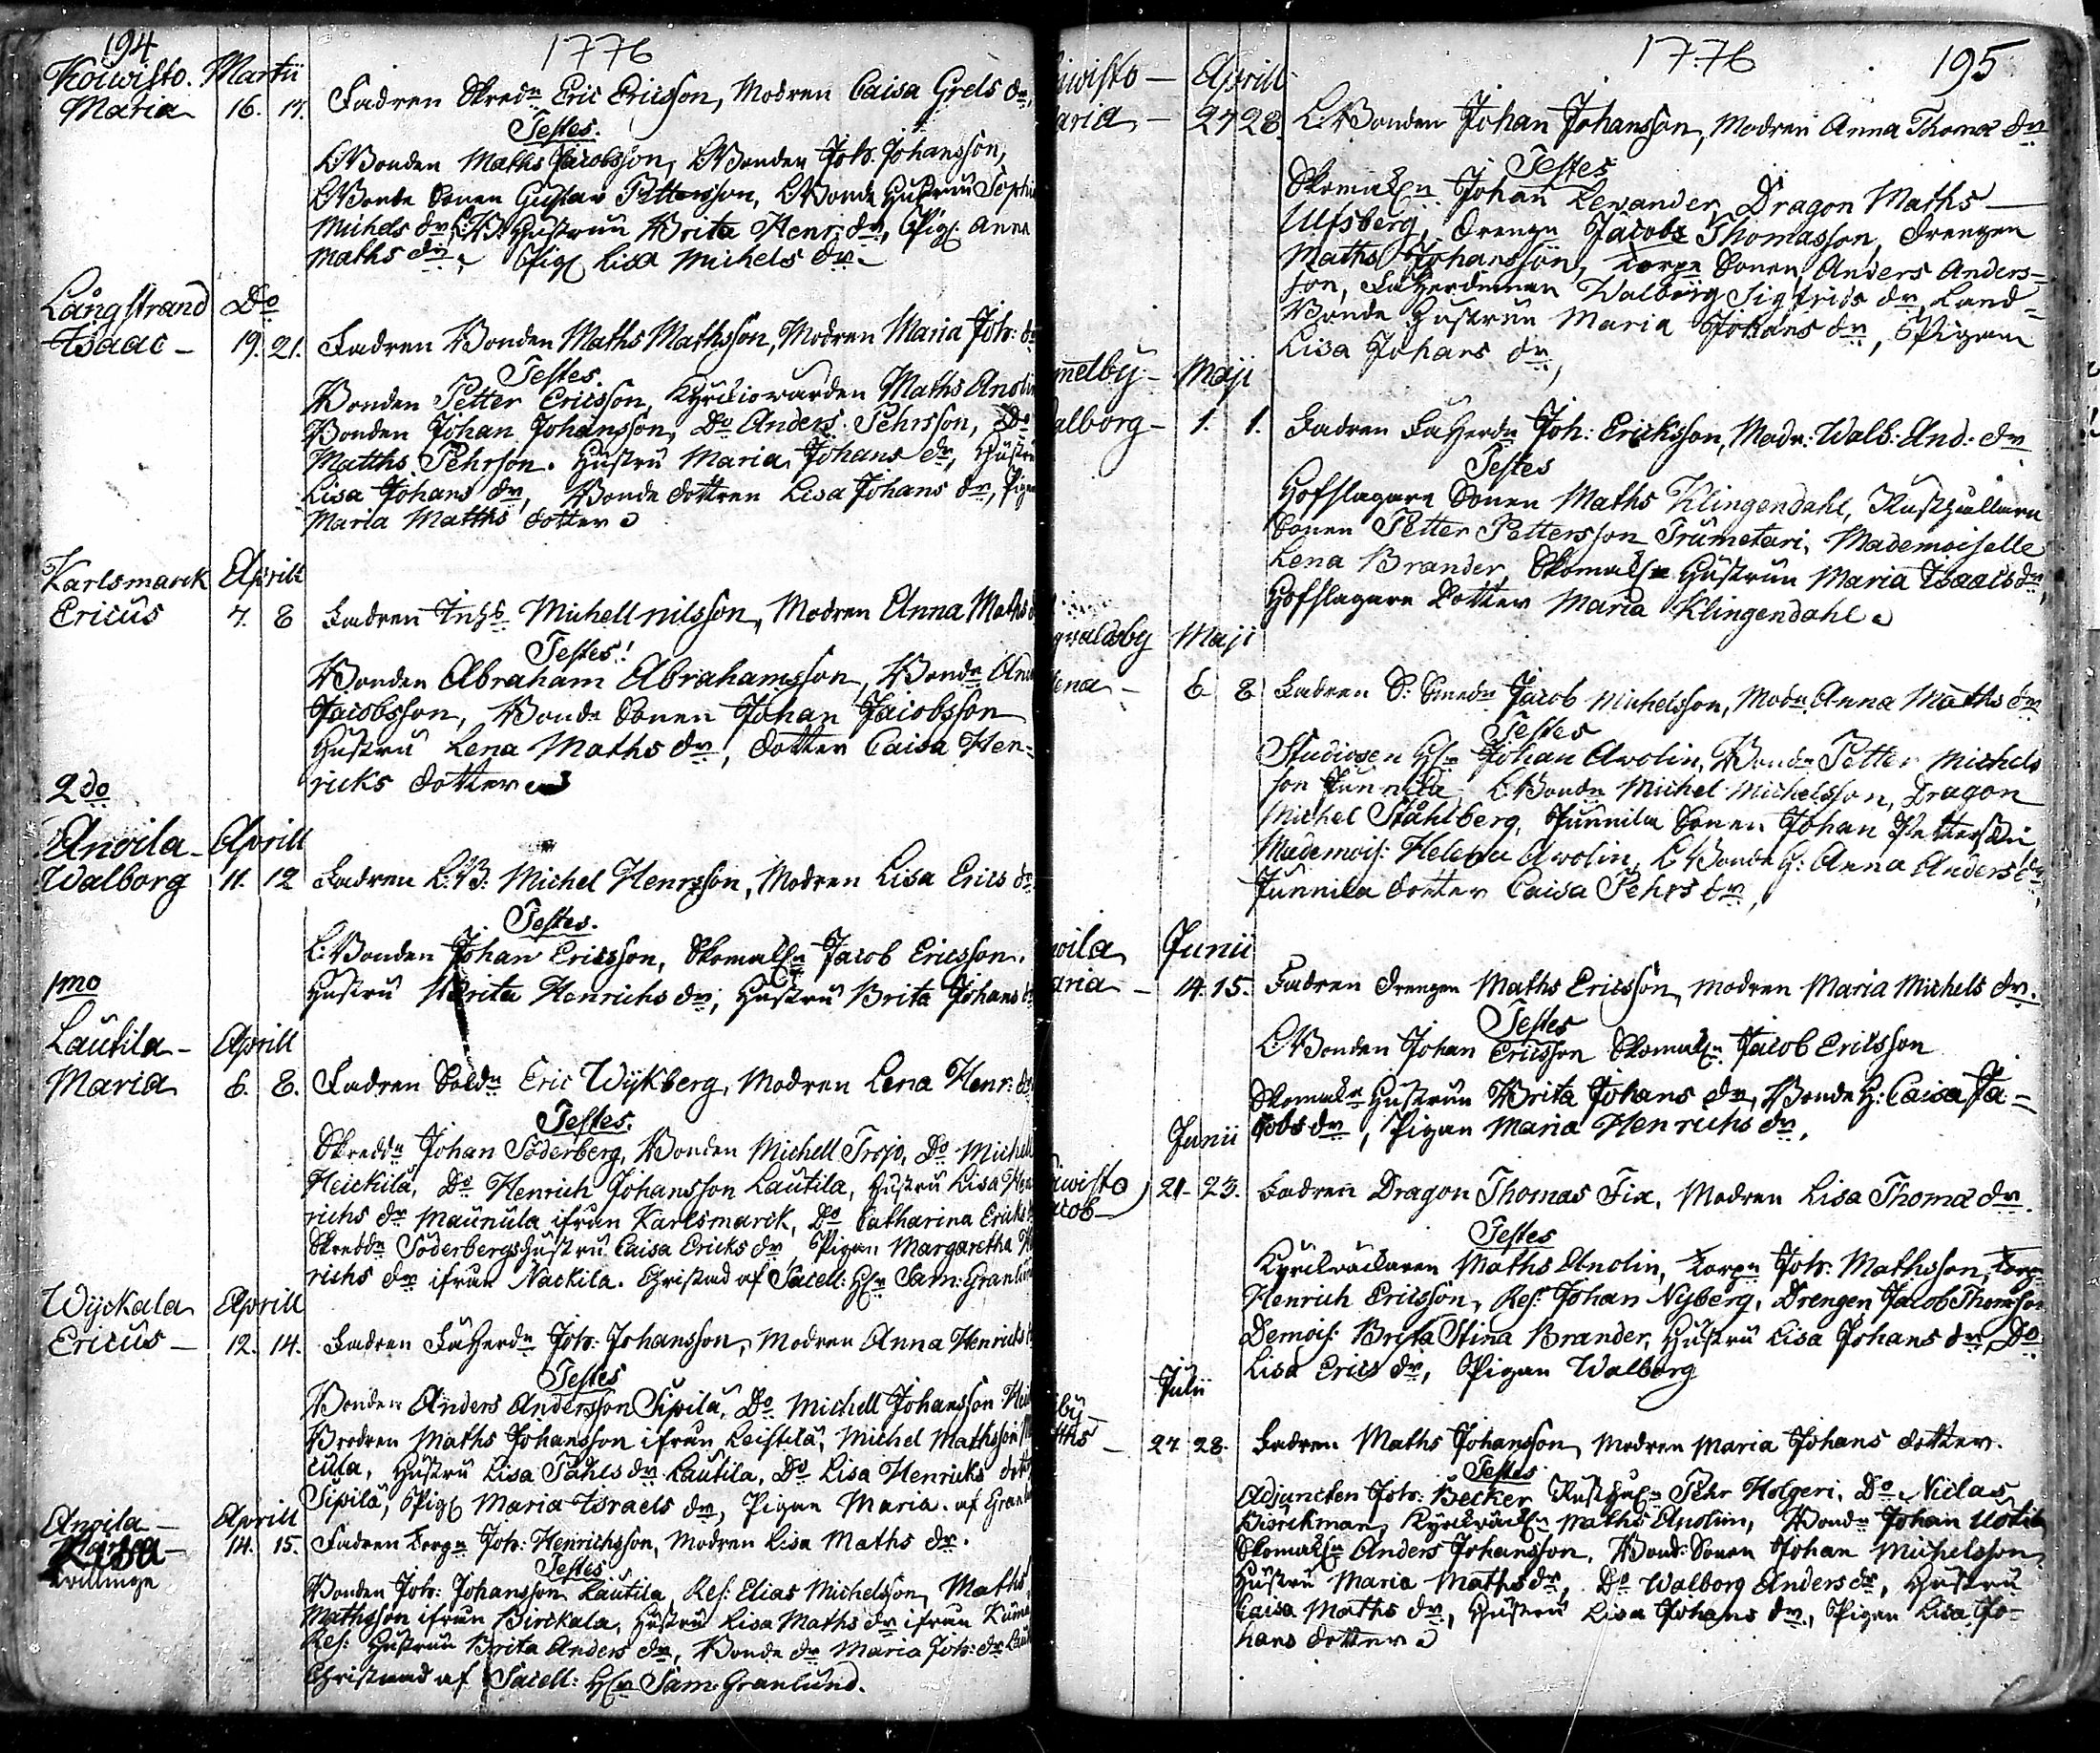 194
1776
Koiwisto. Martii
Maria 16. 17. Fadren Skredn Eric Ericsson, Modren Caisa Grels dr,
Testes.
L:Bonden Maths Jacobsson, L:Bonden Joh: Johansson,
L:Bonde Sonen Gustav Pettersson, L:Bonde Hustrun Sophia
Michels dr, L:B: Hustrun Brita Henr: dr, Pig: Anna
Maths dr, Pig: Lisa Michels dr
Långstrand Do
Isaac - 19. 21. Fadren Bonden Maths Mathsson, Modren Maria Joh: dr
Testes.
Bonden Petter Ericsson, Kyrkiowarden Maths Anolin
Bonden Johan Johansson, Do Anders Pehrsson, Do
Matths Pehrson. Hustru Maria Johans dr, Hustru
Lisa Johans dr, Bonde dottren Lisa Johans dr, Pigan
Maria Matths dotter
Karlsmarck Aprill
Ericus 7. 8 Fadren Inhs Michell nilsson, Modren Anna Maths
Testes!
Bonden Abraham Abrahamsson, Bondn And
Jacobsson, Bonde Sonen Johan Jacobsson
Hustru Lena Maths dr, dotter Caisa Hen-
ricks dotter
2do
Anoila - Aprill
Walborg 11. 12 Fadren L:B: Michel Henrsson, Modren Lisa Erics dr
Testes.
L:Bonden Johan Ericsson, Skomakn Jacob Ericsson.
Hustru Brita Henrichs dr, Hustru Brita Johans dr
1mo
Lautila - Aprill
Maria 6. 8. Fadren Soldn Eric Wijkberg, Modren Lena Henr: dr
Testes.
Skreddn Johan Söderberg, Bonden Michell Trojo, Do Michell
Heickilä, Do Henrich Johansson Lautila, Hustru Lisa Hen
richs dr Maunula ifrån Karlsmarck, Do Catharina Ericks
Skreddn Söderbergs Hustru Caisa Ericks dr Pigan Margaretha H
richs dr ifrån Nackila. Christnad af Sacell: Hr Sam: Granlund
Wijckala Aprill
Ericus - 12. 14. Fadren Fäherdn Joh: Johansson, Modren Anna Henricks
Testes
Bonden Anders Andersson Sipilä, Do Michell Johansson Hei
Brodren Maths Johansson ifrån Leistilä, Michel Mathsson
cula, Hustru Lisa Påhls dr Lautila, Do Lisa Henricks dott
Sipilä, Pig: Maria Israels dr, Pigan Maria. af Granlu
Anoila - Aprill
Lisa - 14. 15. Fadren Torpn Joh: Henrichsson, Modren Lisa Maths dr.
tvillinge
Testes
Bonden Joh: Johansson Lautila, Res: Elias Michelsson, Maths
Mathsson ifrån Birckala, Hustru Lisa Maths dr ifrån Kuma
Res: Hustrun Brita Anders dr, Bonde dr Maria Joh: dr Laut
Christnad af Sacell: Hr Sam: Granlund.
1776
195
iwisto - Aprill
aria - 27 28. L:Bonden Johan Johansson, Modren Anna Thomæ dr
Testes
Skomakn Johan Lewander, Dragon Maths
Ulfsberg, Drengn Jacob Thomasson, Drengen
Maths Johansson, Torpn Sonen Anders Anders-
son, Fäherdinnan Walborg Sigfrids dr, Land-
Bonde Hustrun Maria Johans dr, Pigan
Lisa Johans dr,
melby - Maji
alborg - 1. 1. Fadren Fäherdn Joh: Ericksson, Modr: Walb: And: dr
Testes
Hofslagare Sonen Maths Klingendahl, Rusthållare
Sonen Petter Pettersson Trumetari, Mademoiselle
Lena Brander, Skomakn Hustrun Maria Isaacs dr,
Hofslagare Dotter Maria Klingendahl
gwaldsby Maji
lena - 6 8 Fadren S: Smedn Jacob Michelsson, Modn Anna Maths dr
Testes
Studiosen Hr Johan Avolin, Bondn Petter Michels
son Junnila, L:Bondn Michel Michelsson, Dragon
Michel Ståhlberg, Junnila Sonen Johan Pettersson
Mademois: Helena Avolin, L:Bonde H: Anna Anders dr,
Junnila dotter Caisa Pehrs dr,
noila Junii
aria - 14. 15. Fadren Drengen Maths Ericsson, Modren Maria Michels dr.
Testes
L:Bonden Johan Ericsson Skomakn Jacob Ericsson
Skomakn Hustrun Brita Johans dr, Bonde H: Caisa Ja-
cobs dr, Pigan Maria Henrichs dr,
Junii
iwisto 21. 23. Fadren Dragon Thomas Fix, Modren Lisa Thomæ dr.
acob -
Testes
Kyrckväckaren Maths Anolin, Torpn Joh: Mathsson, Torpn
Henrich Ericsson, Res: Johan Nyberg, Drengen Jacob Thomsson
Demois: Brita Stina Brander, Hustru Lisa Johans dr, Do
Lisa Erics dr, Pigan Walborg
Julii
by -
ths - 27 28. Fadren Maths Johansson, Modren Maria Johans dotter.
Testes
Adjuncten Joh: Becker, Rusthåln Pehr Holgeri, Do Niclas
Biörckman, Kyrckväckn Maths Anolin, Bondn Johan Uotila
Skomakn Anders Johansson, Bond: Sonen Johan Michelsson,
Hustru Maria Maths dr, Do Walborg Anders dr, Hustru
Caisa Maths dr, Hustru Lisa Johans dr, Pigan Lisa Jo-
hans dotter